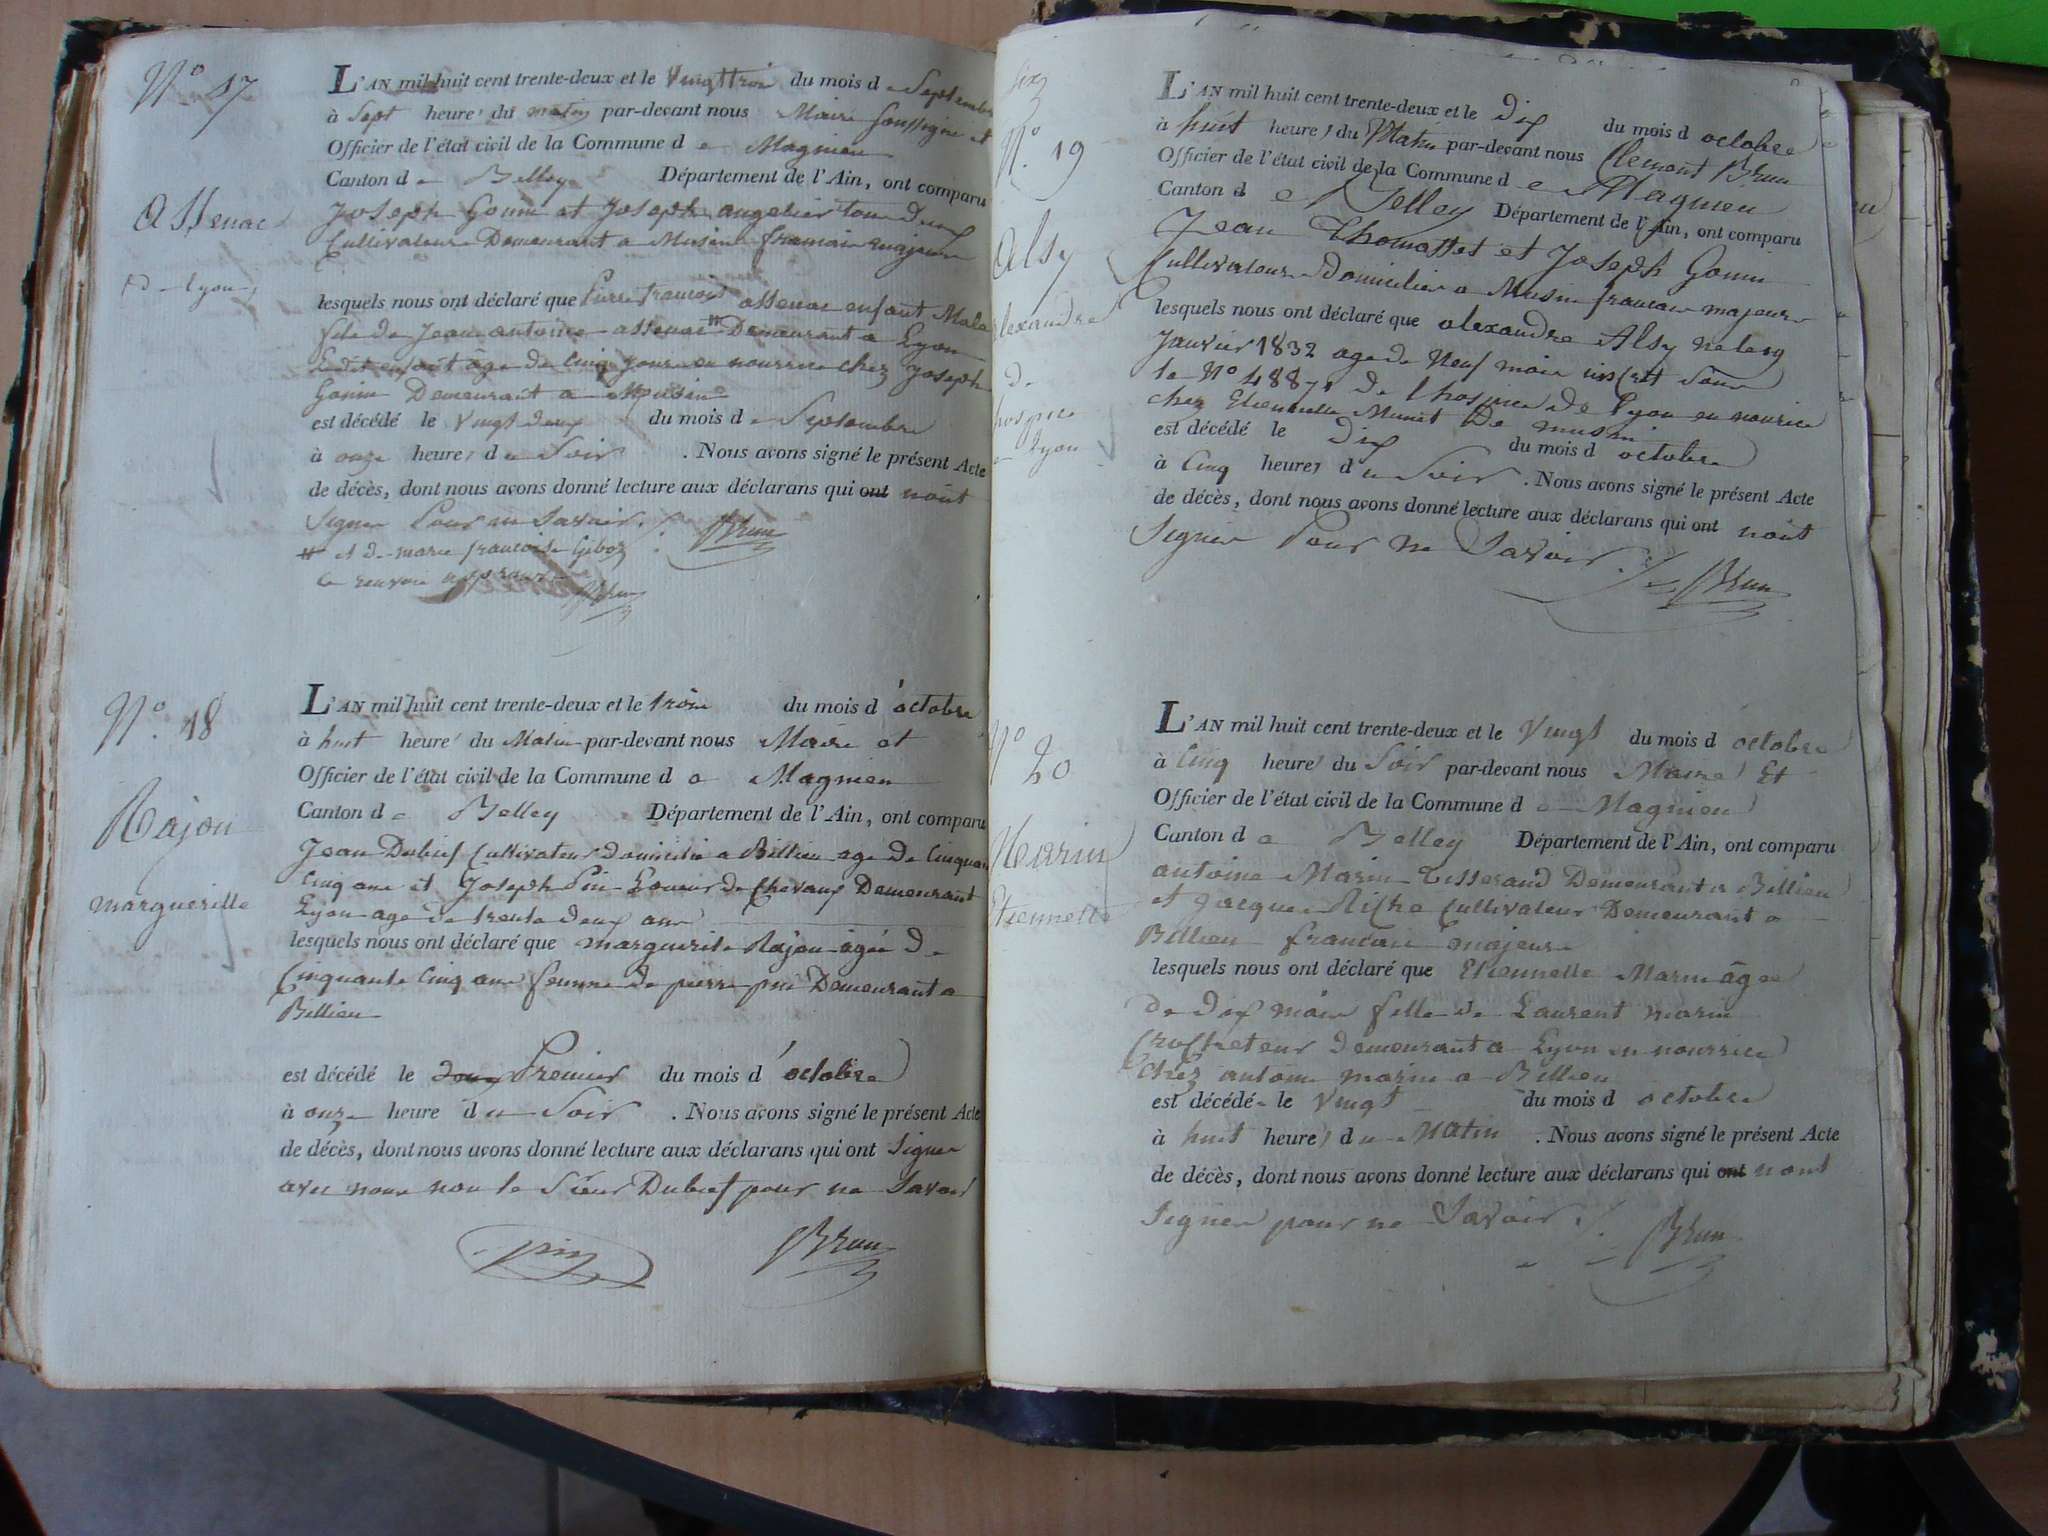 N° 17
assenac
de Lyon
L'AN mil huit cent trente-deux et le vingt trois du mois de Septembre
à Sept heures du matin par-devant nous Maire soussigné et
Officier de l'état civil de la Commune de Magnieu
Canton de Belley Département de l'Ain, ont comparu
Joseph Gonin et Joseph angelier tous deux
Cultivateurs Demeurant a Musin francais majeurs
lesquels nous ont déclaré que Pierre francois assenac enfant Male
fils de Jean antoine assenac # Demeurant a Lyon
Le dit enfant âge de cinq jours en nourrice chez Joseph
Gonin Demeurant a Musin
est décédé le vingt deux du mois de Septembre
à onze heures du Soir . Nous avons signé le présent Acte
de décès, dont nous avons donné lecture aux déclarans qui ont n'ont
signer Pour ne Savoir. Brun
# et de marie francoise
ce renvoi approuvé Brun
N° 18
Rajon
marguerille
L'AN mil huit cent trente-deux et le trois du mois d'octobre
à huit heures du Matin par-devant nous Maire et
Officier de l'état civil de la Commune de Magnieu
Canton de Belley Département de l'Ain, ont comparu
Jean Dubief Cultivateur domicilié a Billieu age de Cinquante
Cinq ans et Joseph Pin Loueur de chevaux Demeurant
Lyon age de trente deux ans
lesquels nous ont déclaré que marguerite Rajon âgée de
Cinquante Cinq ans femme de pierre pin Demeurant a
Billieu
est décédé le Premier du mois d'octobre
à onze heure du Soir . Nous avons signé le présent Acte
de décès, dont nous avons donné lecture aux déclarans qui ont signer
avec nous non le Sieur Dubief pour ne Savoir
pin Brun
N° 19
Alsy
alexandre
de
hospice
de Lyon
L'AN mil huit cent trente-deux et le Dix du mois d octobre
à huit heures du Matin par-devant nous Clemont Brun
Officier de l'état civil de la Commune de Magnieu
Canton de Belley Département de l'Ain, ont comparu
Jean Thomasset et Joseph Gonin
Cultivateurs Domicilies a Musin francais majeurs
lesquels nous ont déclaré que alexandre Alsy né le
Janvier 1832 age de Neuf mois inscrit sous
le N° de l'hospice de Lyon en nourice
chez Etiennette Munet De musin
est décédé le dix du mois d octobre
à Cinq heures du Soir . Nous avons signé le présent Acte
de décès, dont nous avons donné lecture aux déclarans qui ont n'ont
Signer Pour ne Savoir. Brun
N° 20
Marin
Etiennette
L'AN mil huit cent trente-deux et le Vingt du mois d'octobre
à Cinq heures du Soir par-devant nous Maire Et
Officier de l'état civil de la Commune de Magnieu
Canton de Belley Département de l'Ain, ont comparu
antoine Marin Tisserand Demeurant a Billieu
et Jacques Riche Cultivateur Demeurant a
Billieu francais majeurs
lesquels nous ont déclaré que Etiennette Marin âgée
de Dix mois fille de Laurent marin
Demeurant a Lyon en nourrice
Chez antoine marin a Billieu
est décédée le Vingt du mois d octobre
à huit heures du Matin . Nous avons signé le présent Acte
de décès, dont nous avons donné lecture aux déclarans qui ont n'ont
signer pour ne Savoir. Brun